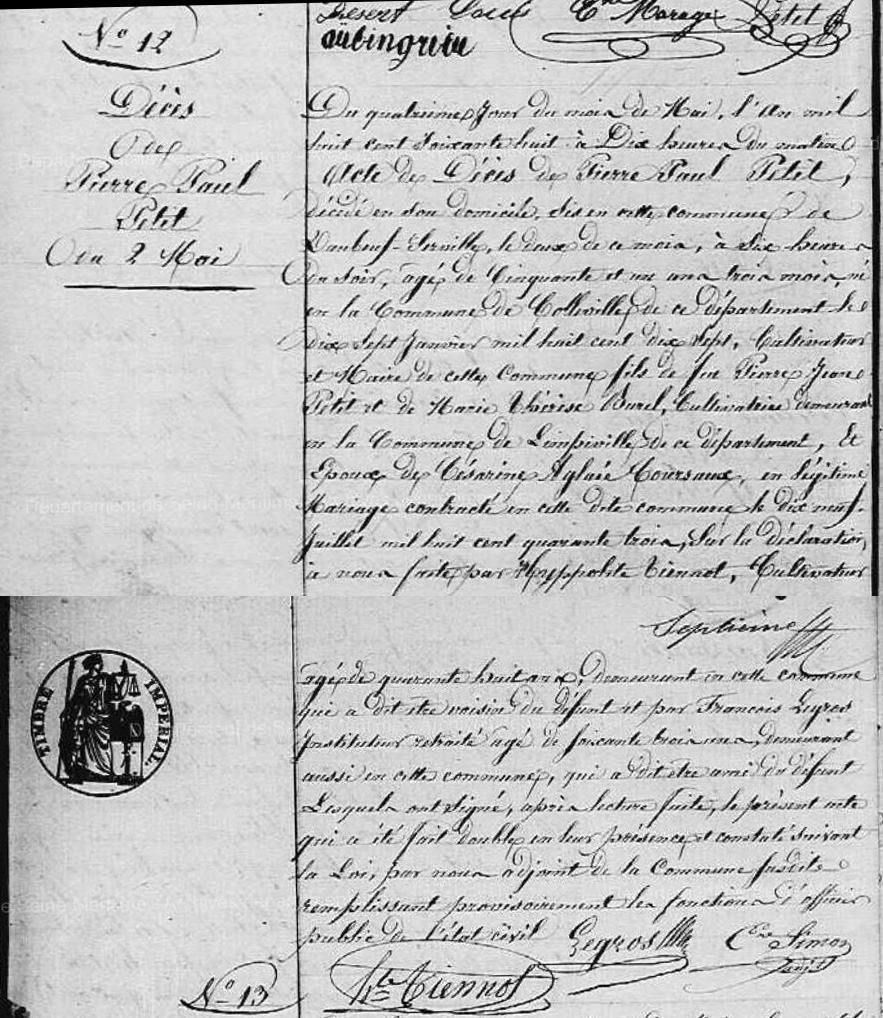 Désert Louis Cne Marage Petit
aubingrieu
N° 12
Décès
de
Pierre Paul
Petit
du 2 Mai
Du quatrième Jour du mois de Mai, l'An mil
huit cent soixante huit à Dix heures du matin
Acte de Décès de Pierre Paul Petit,
décédé en son domicile, sis en cette commune de
Daubeuf-Serville, le deux de ce mois, à Six heures
du soir, agé de Cinquante et un ans trois mois, né
en la Commune de Colleville de ce département le
dix sept Janvier mil huit cent dix sept, Cultivateur
et Maire de cette Commune fils de feu Pierre Jean
Petit et de Marie Thérèse Burel, Cultivatrice demeurant
en la Commune de Limpiville de ce département, Et
Epoux de Césarine Aglaé Coursaux, en légitime
Mariage contracté en cette dite commune le dix neuf
Juillet mil huit cent quarante trois, Sur la déclaration
à nous faite par Hyppolite Tiennot, Cultivateur
Septième
TIMBRE IMPERIAL
agé de quarante huit ans, demeurant en cette commune
qui a dit être voisin du défunt et par Francois Legros
Instituteur retraité agé de soixante trois ans, demeurant
aussi en cette commune, qui a dit être ami du défunt
Lesquels ont signé, après lecture faite, le présent acte
qui a été fait double en leur présence et constaté suivant
la Loi, par nous adjoint de la Commune susdite
remplissant provisoirement les fonctions d'officier
public de l'état civil Legros Cre Simon
adjt
hte Tiennot
N° 13